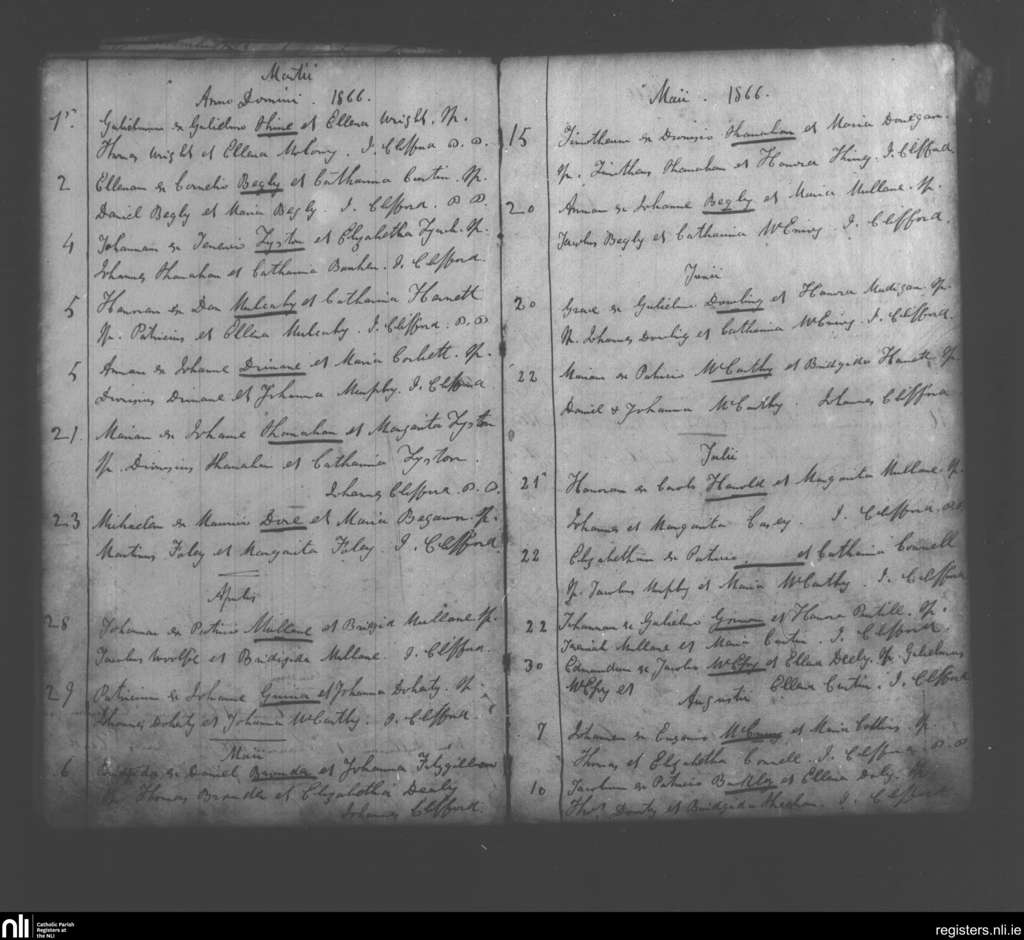 Martii
Anno Domini. 1866.
1º. Gulielmum ex Gulielmo Shine et Ellena Wright. Sp.
Thomas Wright et Ellena Molony. J. Clifford P. P.
2 Ellenam ex Cornelio Begly et Catharina Curtin. Sp.
Daniel Begly et Maria Begly. J. Clifford. P. P.
4 Johannam ex Lyston et Elizabetha Lynch. Sp.
Johannes Shanahan et Catharina J. Clifford.
5 Honoram ex Dan Mulcahy et Catharina Harnett
Sp. Patricius et Ellena Mulcahy. J. Clifford. P. P.
5 Annam ex Johanne Drinane et Maria Corbett. Sp.
Dionisius Drinane et Johanna Murphy. J. Clifford
21. Mariam ex Johanne Shanahan et Margarita Lyston
Sp. Dionysius Shanahan et Catharina Lyston.
Johannes Clifford. P. P.
23 Michaelem ex Mauricio Dore et Maria Sp.
Martinus Foley et Margarita Foley. J. Clifford
Aprilis
28 Johannam ex Patricio Mullane et Brigida Mullane Sp.
Jacobus Woolfe et Bridigida Mullane. J. Clifford.
29 Patricium ex Johanne et Johanna Doherty. Sp.
Thomas Doherty et Johanna McCarthy. J. Clifford.
Maii
6 Bridgida ex Daniel et Johanna Fitzgibbon
Sp. Thomas et Elizabetha Dealy
Johannes Clifford.
Maii. 1866.
15 Timotheum ex Dionisio Shanahan et Maria Donegan.
Sp. Timotheus Shanahan et Honora J. Clifford
20 Annam ex Johanne Begly et Maria Mullane. Sp.
Jacobus Begly et Catharina McEniry J. Clifford.
Junii
20 Grace ex Gulielmo Dowling et Honora Madigan. Sp.
Sp. Johannes Dowling et Catharina McEniry. J. Clifford.
22 Mariam ex Patricio McCarthy et Bridgida Harnett. Sp.
Daniel & Johanna McCarthy. Johannes Clifford
Julii
21 Honoram ex Carolo Harold et Margarita Mullane. Sp.
Johannes et Margarita Casey J. Clifford. P.P.
22 Elizabetham ex Patricio et Catharina Connell
Sp. Jacobus Murphy et Maria McCarthy. J. Clifford
22 Johannam ex Gulielmo et Honora Sp.
Mullane et Maria Curtin. J. Clifford.
30 Edmundum ex Jacobo McEfry et Ellena Deely. Sp. Gulielmus
McEfry et Ellena Curtin. J. Clifford
Augusti
7 Johannem ex Eugenio McEniry et Maria Collins. Sp.
Thomas et Elizabetha Connell. J. Clifford P. P.
10 Jacobum ex Patricio Buckley et Ellena Daly. Sp.
Thos. et Bridgida Sheehan. J. Clifford
nli
Catholic Parish
Registers at
the NLI
registers.nli.ie